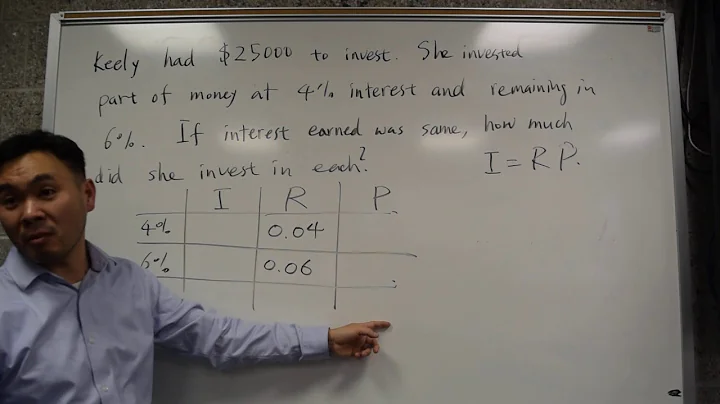 Keely had $25000 to invest. She invested
part of money at 4% interest and remaining in
6%. If interest earned was same, how much
did she invest in each?
I = R P.
I R P
4% 0.04
6% 0.06